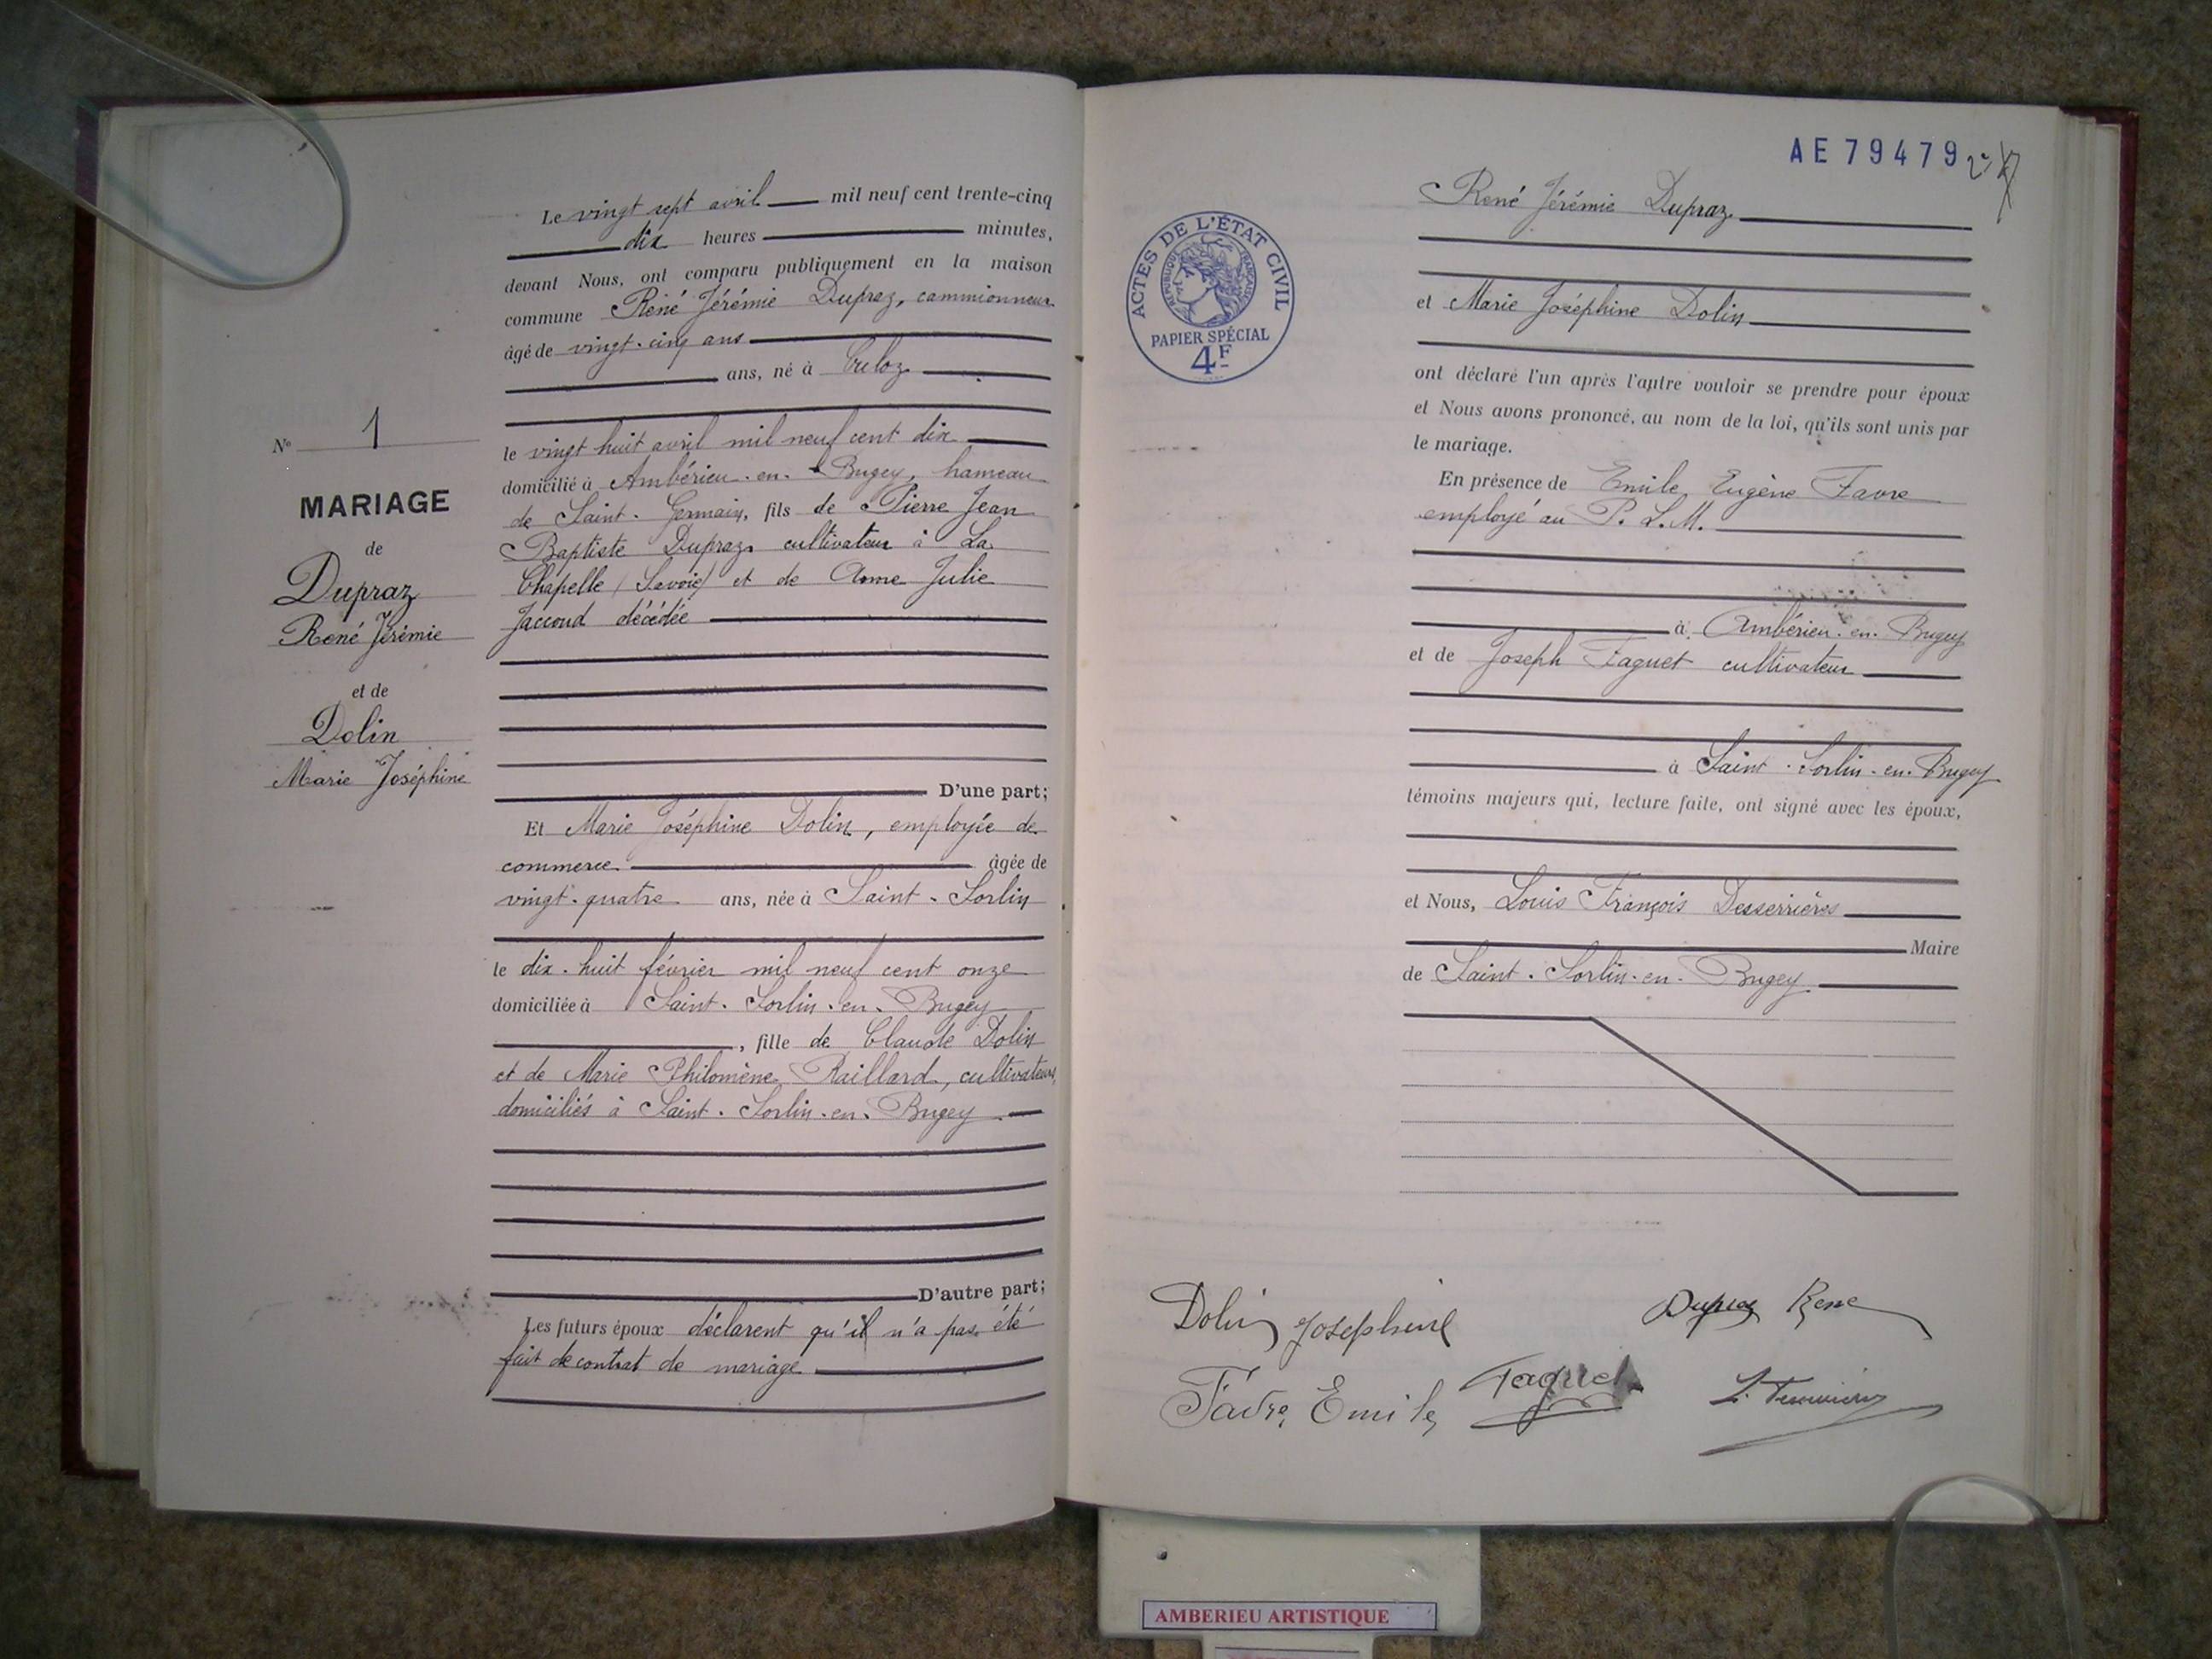 Le vingt sept avril mil neuf cent trente-cinq
dix heures minutes,
devant Nous, ont comparu publiquement en la maison
commune René Jérémie Dupraz, cammionneur
âgé de vingt-cinq ans
ans, né à Culoz
le vingt huit avril mil neuf cent dix
domicilié à Ambérieu-en-Bugey, hameau
de Saint-Germain, fils de Pierre Jean
Baptiste Dupraz cultivateur à La
Chapelle (Savoie) et de Anne Julie
Jaccoud décédée
D'une part;
Et Marie Joséphine Dolin, employée de
commerce âgée de
vingt-quatre ans, née à Saint-Sorlin
le dix-huit février mil neuf cent onze
domiciliée à Saint-Sorlin-en-Bugey
, fille de Claude Dolin
et de Marie Philomène Raillard, cultivateurs,
domiciliés à Saint-Sorlin-en-Bugey
D'autre part;
Les futurs époux déclarent qu'il n'a pas été
fait de contrat de mariage
N° 1
MARIAGE
de
Dupraz
René Jérémie
et de
Dolin
Marie Joséphine
AE79479
ACTES DE L'ÉTAT CIVIL
RÉPUBLIQUE FRANÇAISE
PAPIER SPÉCIAL
4F
René Jérémie Dupraz
et Marie Joséphine Dolin
ont déclaré l'un après l'autre vouloir se prendre pour époux
et Nous avons prononcé, au nom de la loi, qu'ils sont unis par
le mariage.
En présence de Emile Eugène Favre
employé au P.L.M.
à Ambérieu-en-Bugey
et de Joseph Faguet cultivateur
à Saint-Sorlin-en-Bugey
témoins majeurs qui, lecture faite, ont signé avec les époux,
et Nous, Louis François Desserrières
Maire
de Saint-Sorlin-en-Bugey
Dolin Joséphine
Dupraz René
Favre Emile
Faguet
AMBERIEU ARTISTIQUE